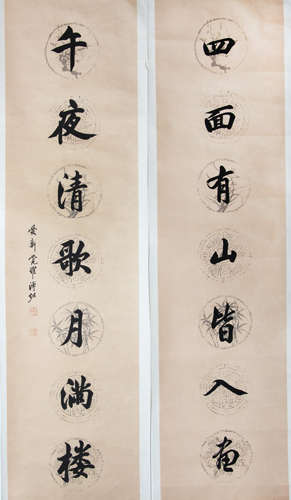 四面有山皆入画
午夜清歌月满楼
爱新觉罗溥佐